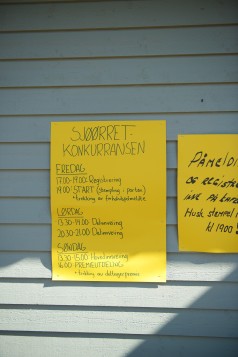 SJØØRRET-
KONKURRANSEN
FREDAG
17.00-19.00: Registrering
19.00: START (Stempling i porten)
LØRDAG
13.30-14.00: Delinnveiing
20.30-21.00: Delinnveiing
SØNDAG
13.30-15.00: Hovedinnveiing
16.00: PREMIEUTDELING
• trekking av deltagerpremie
PÅMELD
og REGISTR
Husk stempel
kl 1900